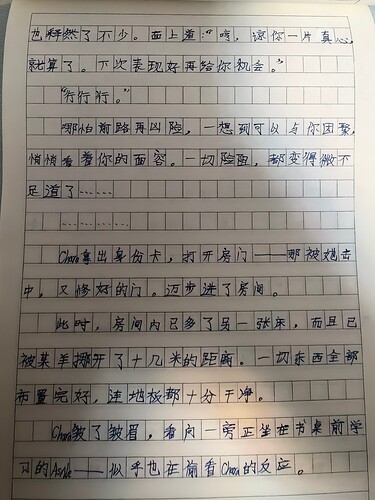 也释然了不少。面上道:“哼,谅你一片真心,
就算了。下次表现好再给你机会。”
“行行行。”
哪怕前路再凶险,一想到可以与你团聚,
悄悄看着你的面容。一切险阻,都变得微不
足道了……
…………
Chara拿出身份卡,打开房门——那被她击
中,又修好的门。迈步进了房间。
此时,房间内已多了另一张床,而且已
被某羊挪开了十几米的距离。一切东西全部
布置完好,连地板都十分干净。
Chara皱了皱眉,看向一旁正坐在书桌前学
习的——似乎也在偷看Chara的反应。